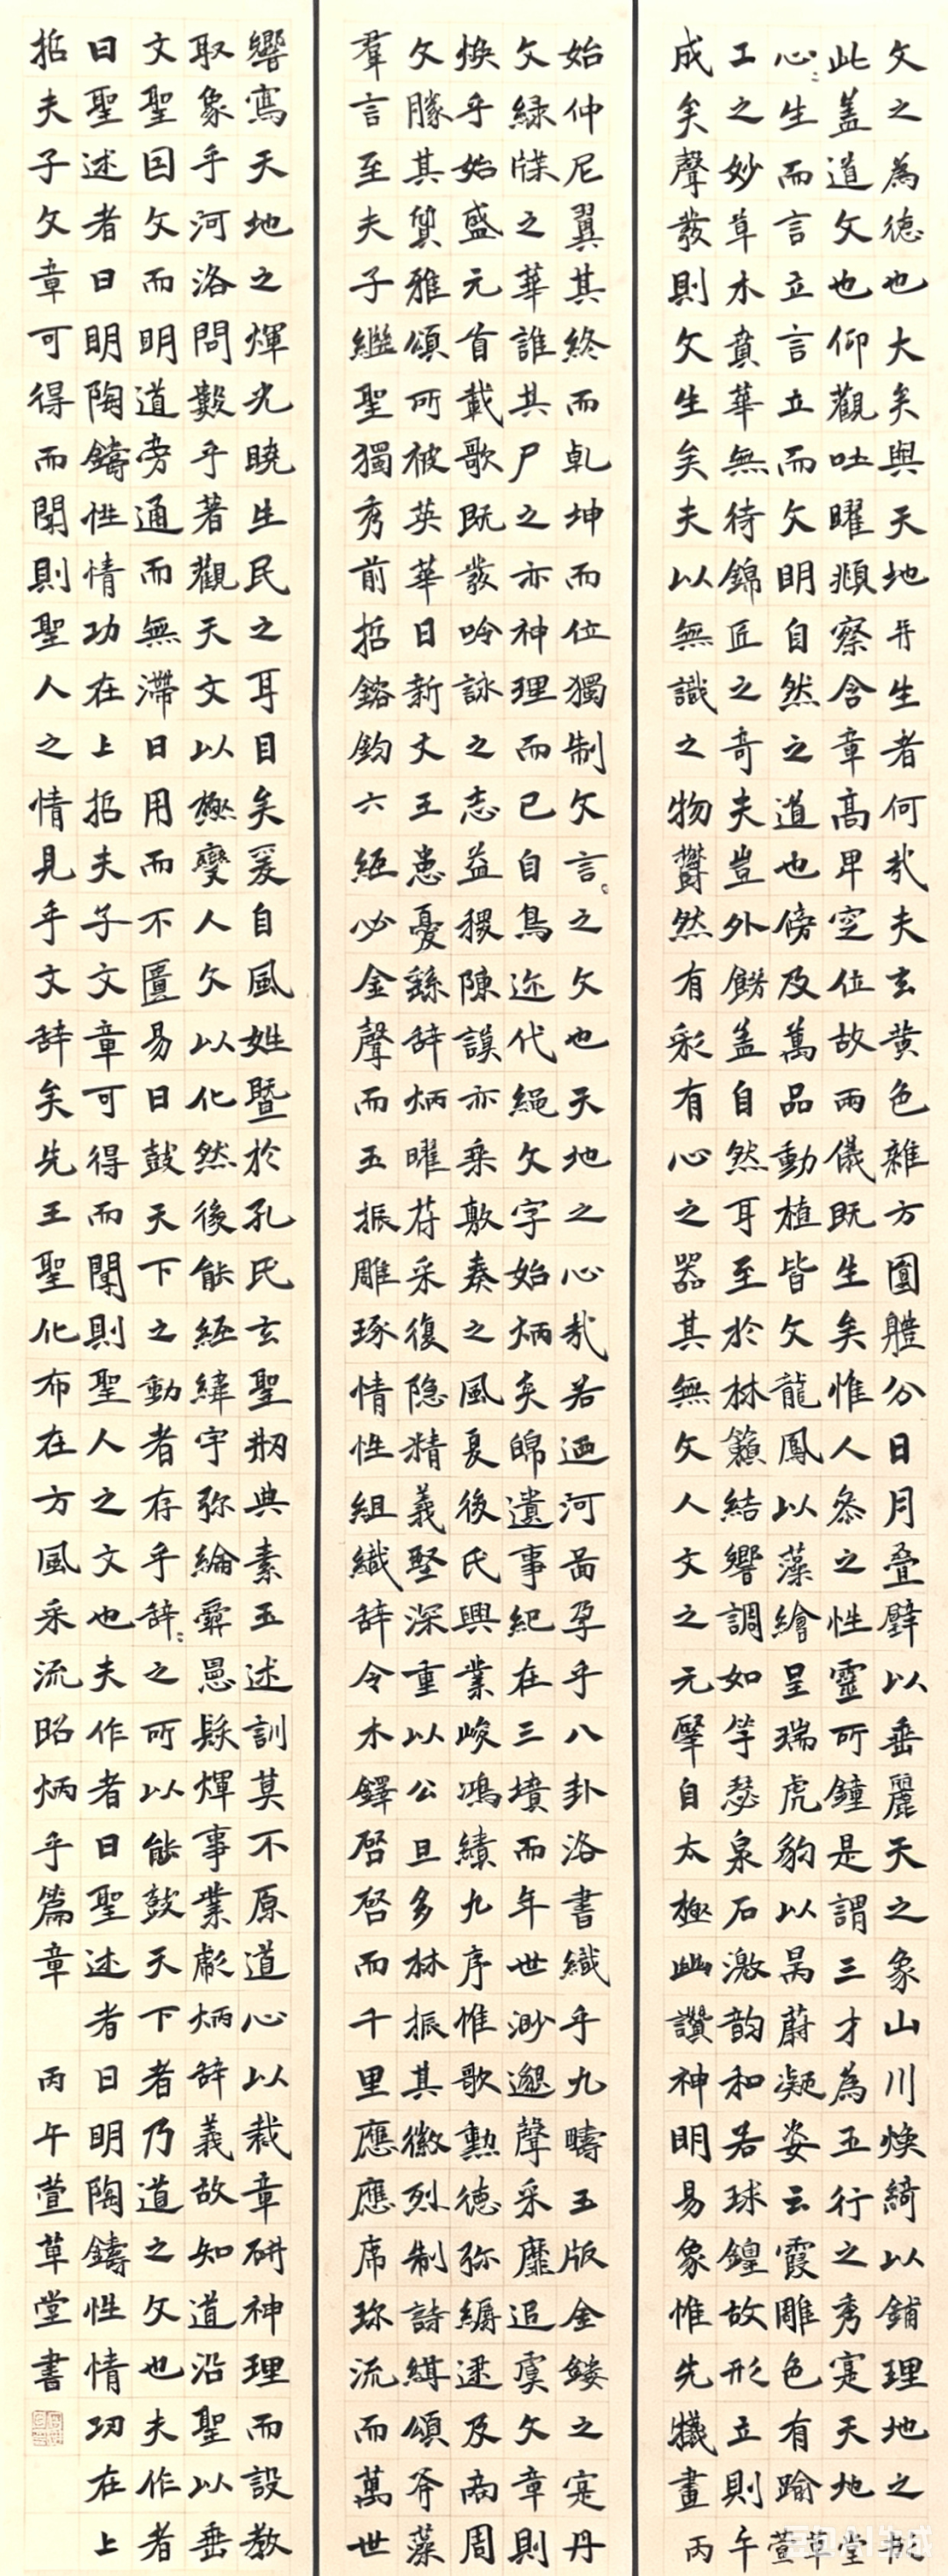 文之為德也大矣與天地并生者何㢤夫玄黃色雜方圓體分日月疊璧以垂麗天之象山川煥綺以鋪理地之形
此蓋道文也仰觀吐曜頫察含章高卑定位故兩儀既生矣惟人叅之性靈所鐘是謂三才為五行之秀寔天地
心〻生而言立言立而文明自然之道也傍及萬品動植皆文龍鳳以藻繪呈瑞虎豹以昺蔚凝姿云霞雕色有踰
工之妙草木賁華無待錦匠之奇夫豈外餝蓋自然耳至於林籟結響調如竽瑟泉石激韵和若球鍠故形立則
成矣聲發則文生矣夫以無識之物鬱然有彩有心之器其無文人文之元肇自太極幽讚神明易象惟先犧畫
丙午萱草堂
始仲尼翼其終而乹坤而位獨制文言〻之文也天地之心㢤若迺河啚孕乎八卦洛書織乎九疇玉版金鏤之寔丹
文緑牒之華誰其尸之亦神理而已自鳥迹代繩文字始炳炎皞遺事紀在三墳而年世渺邈聲采靡追虞文章則
煥乎始盛元首載歌既發吟詠之志益稷陳謨亦乗敷奏之風夏後氏興業峻鴻績九序惟歌勲徳弥縟逮及商周
文勝其質雅頌所被英華日新文王患憂繇辞炳曜符采復隐精義堅深重以公旦多材振其徽烈制詩緝頌斧藻
羣言至夫子繼聖獨秀前哲鎔鈞六經必金聲而玉振雕琢情性組織辞令木鐸啓啓而千里應應席珎流而萬世
響寫天地之煇光曉生民之耳目矣爰自風姓暨於孔氏玄聖剏典素王述訓莫不原道心以裁章研神理而設教
取象乎河洛問數乎蓍觀天文以極變人文以化然後能經緯宇弥綸彞憲發煇事業彪炳辞義故知道沿聖以垂
文聖因文而明道旁通而無滯日用而不匱易曰鼓天下之動者存乎辞〻之所以能鼓天下者乃道之文也夫作者
曰聖述者曰明陶鑄性情功在上哲夫子文章可得而聞則聖人之文也夫作者曰聖述者曰明陶鑄性情功在上
哲夫子文章可得而聞則聖人之情見乎文辞矣先王聖化布在方風采流昭炳乎篇章
丙午萱草堂書